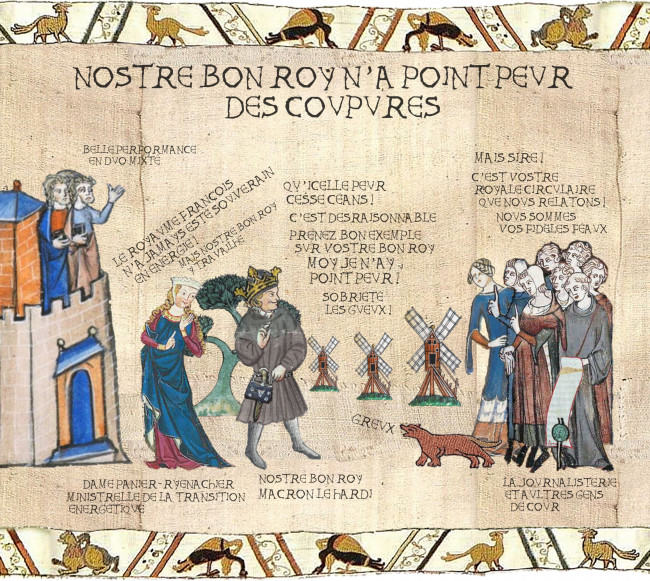 NOSTRE BON ROY N'A POINT PEVR
DES COVPVRES
BELLE PERFORMANCE
EN DVO MIXTE
LE ROYAVME FRANCOIS
N'A JAMAYS ESTE SOUVERAIN
EN ENERGIE !
MAIS NOSTRE BON ROY
Y TRAVAILHE
QV'ICELLE PEVR
CESSE CEANS !
C'EST DESRAISONNABLE
PRENEZ BON EXEMPLE
SVR VOSTRE BON ROY
MOY JE N'AY
POINT PEVR !
SOBRIETE
LES GVEVX !
MAIS SIRE !
C'EST VOSTRE
ROYALE CIRCVLAIRE
QVE NOVS RELATONS !
NOVS SOMMES
VOS FIDELES FEAVX
GREVX
DAME PANIER-RVENACHER
MINISTRELLE DE LA TRANSITION
ENERGETIQVE
NOSTRE BON ROY
MACRON LE HARDI
LA JOVRNALISTERIE
ET AVLTRES GENS
DE COVR